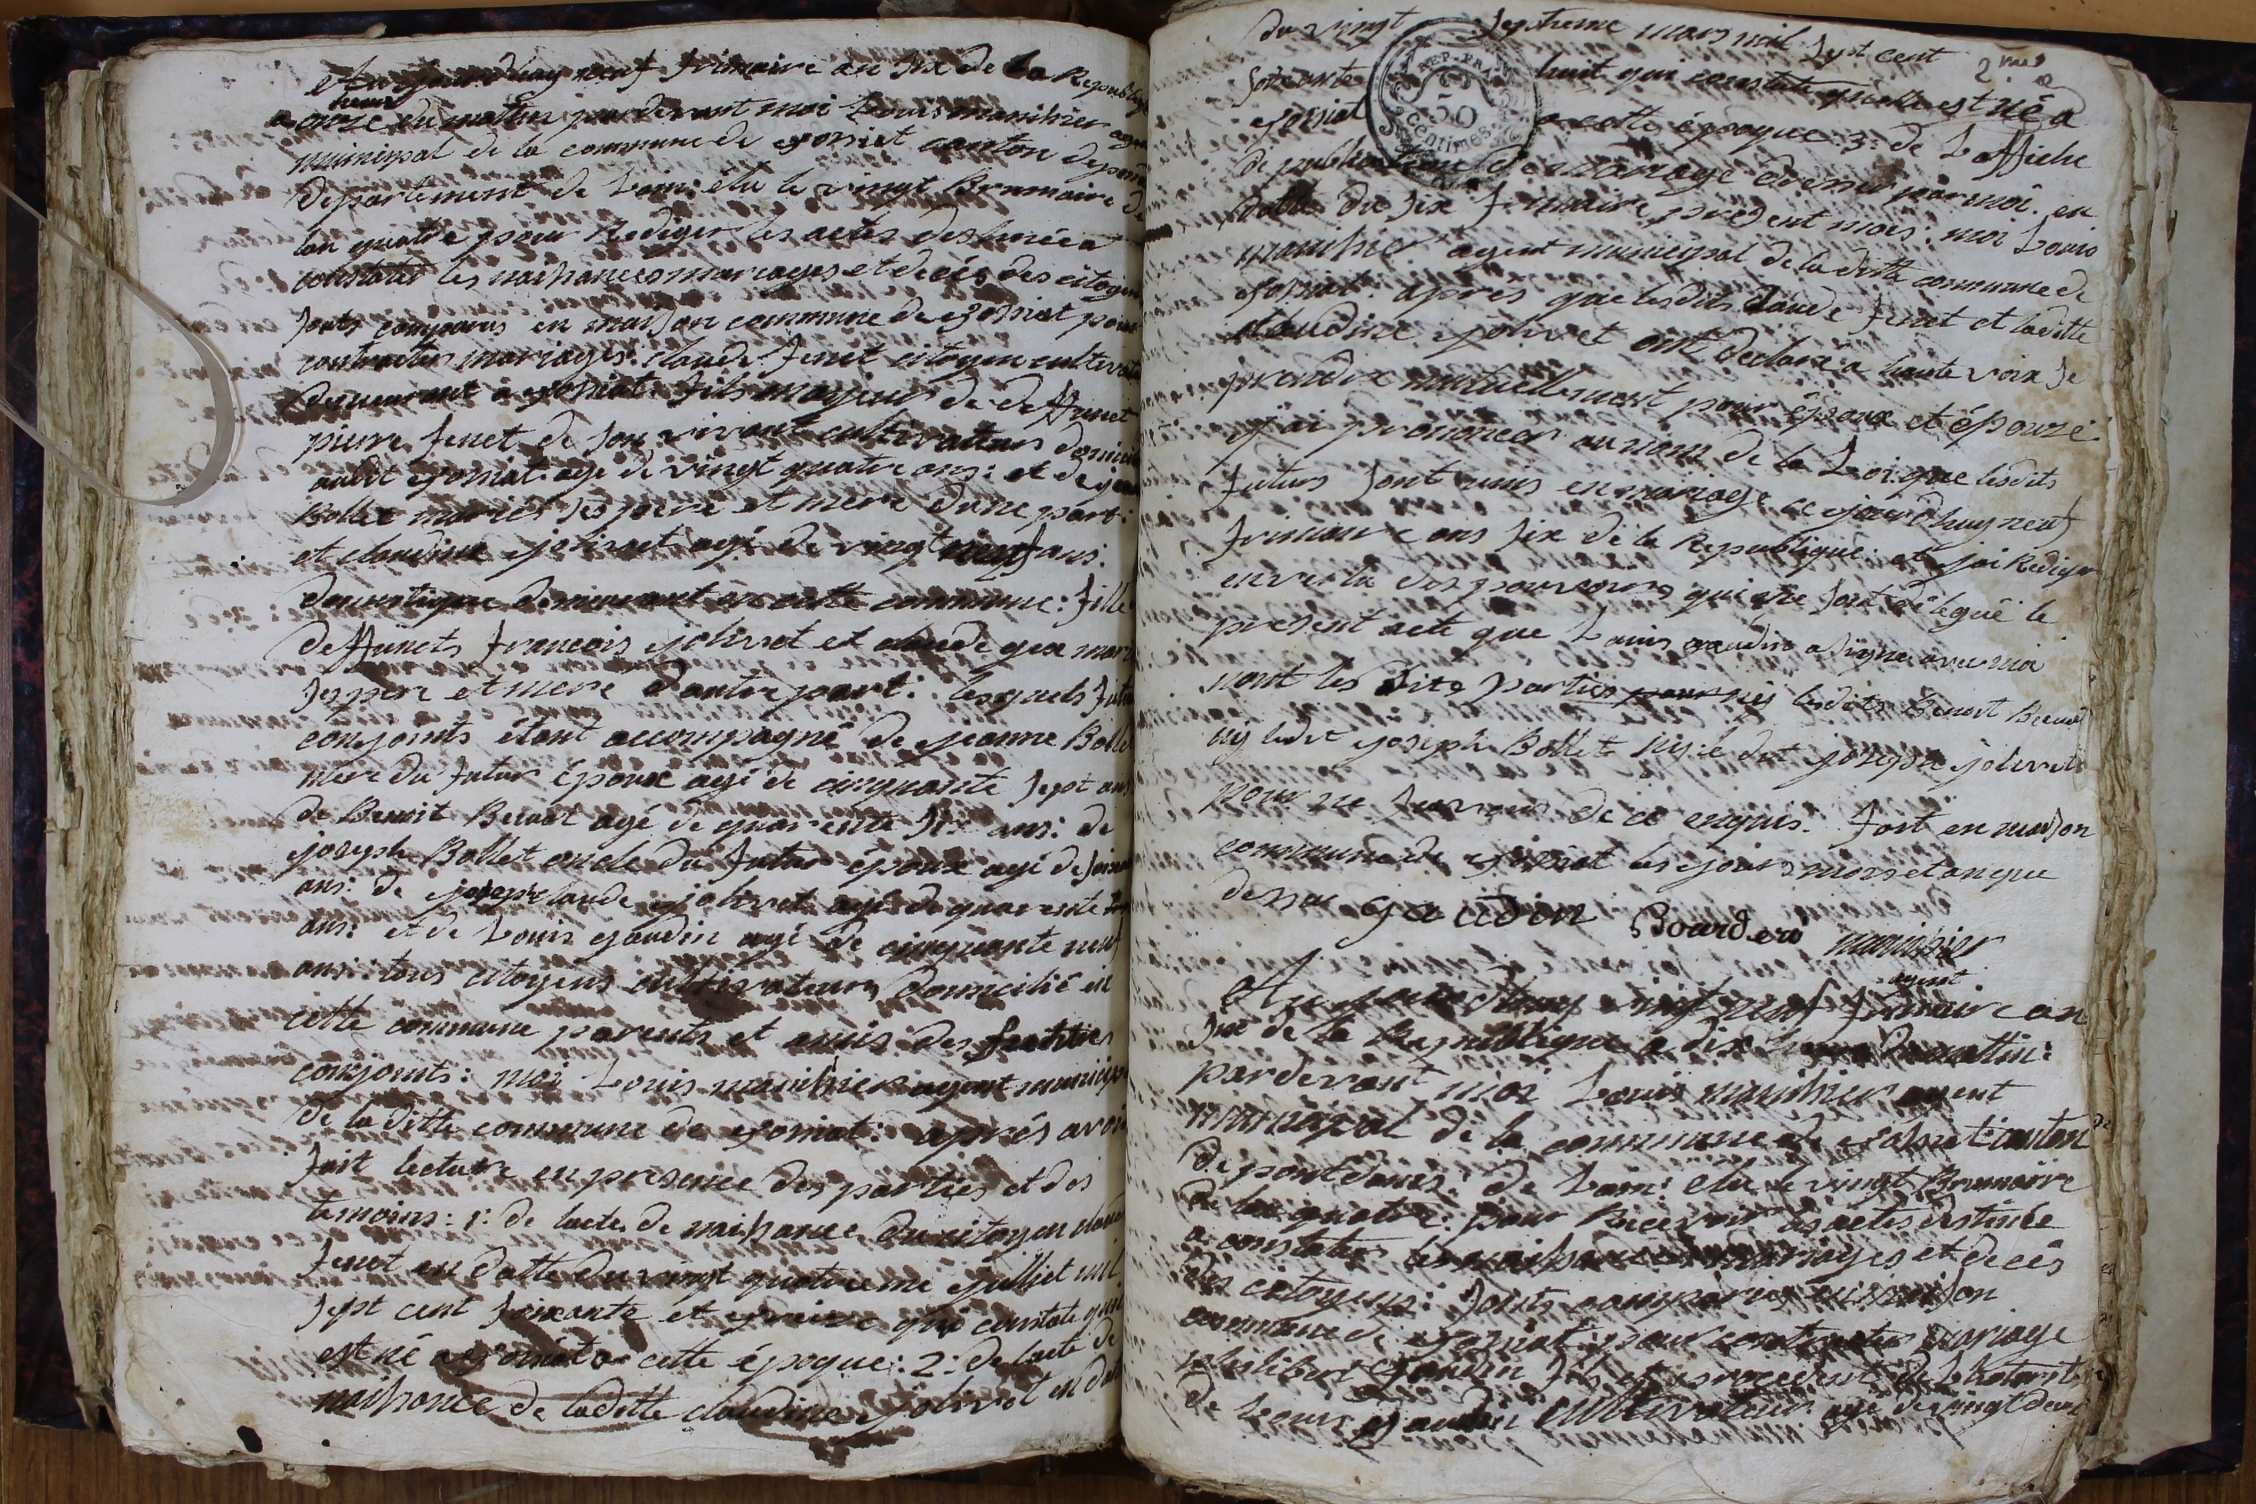 Aujourdhuy neuf frimaire an six de la Republique
heure
a onze du mattin par devant moi Louis manihier agent
municipal de la commune de journiat canton de pont
departement de Lain: élu le vingt Brumaire de
lan quatre pour Rediger les actes destinée a
constater les naissances mariages et decés des citoyens
sonts comparus en maison commune de journiat pour
contracter mariages: claude fenet citoyen cultivateur
demeurant a journiat fils majeur de deffunct
pierre fenet de son vivant cultivateur domicilié
audit journiat agé de vingt quatre ans: et de jeanne
Bollet mariés ses pere et mere dune part:
et claudine jolivet agé de vingt neuf ans:
domestique demeurant en cette commune: fille
deffuncts francois jolivet et claude gea mariés
ses pere et mere d'autre part: lesquels futurs
conjoints étant accompagné de jeanne Bollet
mere du futur époux agé de cinquante sept ans
de Benoit Benoit agé de quarente six ans: de
joseph Bollet oncle du futur époux agé de soixante
ans: de joseph claude jolivet agé de quarente
ans: et de Louis gaudin agé de cinquante neuf
ans: tous citoyens cultivateurs domicilié en
cette commune parents et amis des futures
conjoints: moi Louis manihier agent municipal
de la ditte commune de journiat: aprés avoir
fait lecture en presence des parties et des
temoins: 1: de lacte de naissance du citoyen claude
fenet en datte du vingt quatrieme juilliet mil
sept cent soixante et treize qui constate quil
est né a journiat a cette époque: 2: de lacte de
naissance de laditte claudine jolivet en datte
2me
du vingt septieme mars mil sept cent
soixante huit qui constate quelle est né a
journiat a cette époque: 3: de Laffiche
de publication de mariage dresser par moi en
datte du six frimaire present mois: moi Louis
manihier agent municipal de laditte commune de
journiat: aprés que lesdits claude fenet et laditte
claudine jolivet ont declaré a haute voix se
prendre mutuellement pour époux et épouze
j'ai prononcer au nom de la Loi: que lesdits
futurs sont unis en mariage ce jourdhuy neuf
frimaire ans six de la Republique: et jai Rediger
en vertu des pouvoirs qui me sont délegué le
present acte que Louis gaudin a signe avec moi
nont les dites parties ny lesdits Benoit Benoit
ny ledit joseph Bollet ny: le dit joseph jolivet
pour ne savoir de ce enquis. fait en maison
commune de journiat les jours mois et an que
dessus gaudin Bourderd manihier
agent
Aujourdhuy vingt neuf frimaire an
six de la Republique a dix heures du mattin:
pardevant moi Louis manihier agent
municipal de la commune de journiat: canton
de pontdains: de Lain: élu le vingt Brumaire
de lan quatre: pour Recevoir les actes destinée
a constater les naissances mariages et decés
des citoyens: sonts comparus en maison
commune de journiat: pour contracter mariage
philibert gaudin fils et
de Louis gaudin cultivateur agé de vingt deux